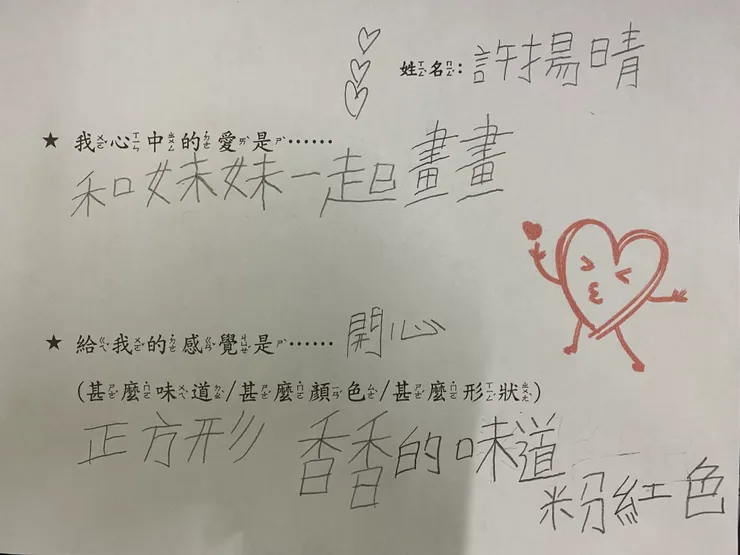 姓名:許揚晴
★ 我心中的愛是……
和妹妹一起畫畫
★ 給我的感覺是……開心
(甚麼味道/甚麼顏色/甚麼形狀)
正方形 香香的味道
粉紅色